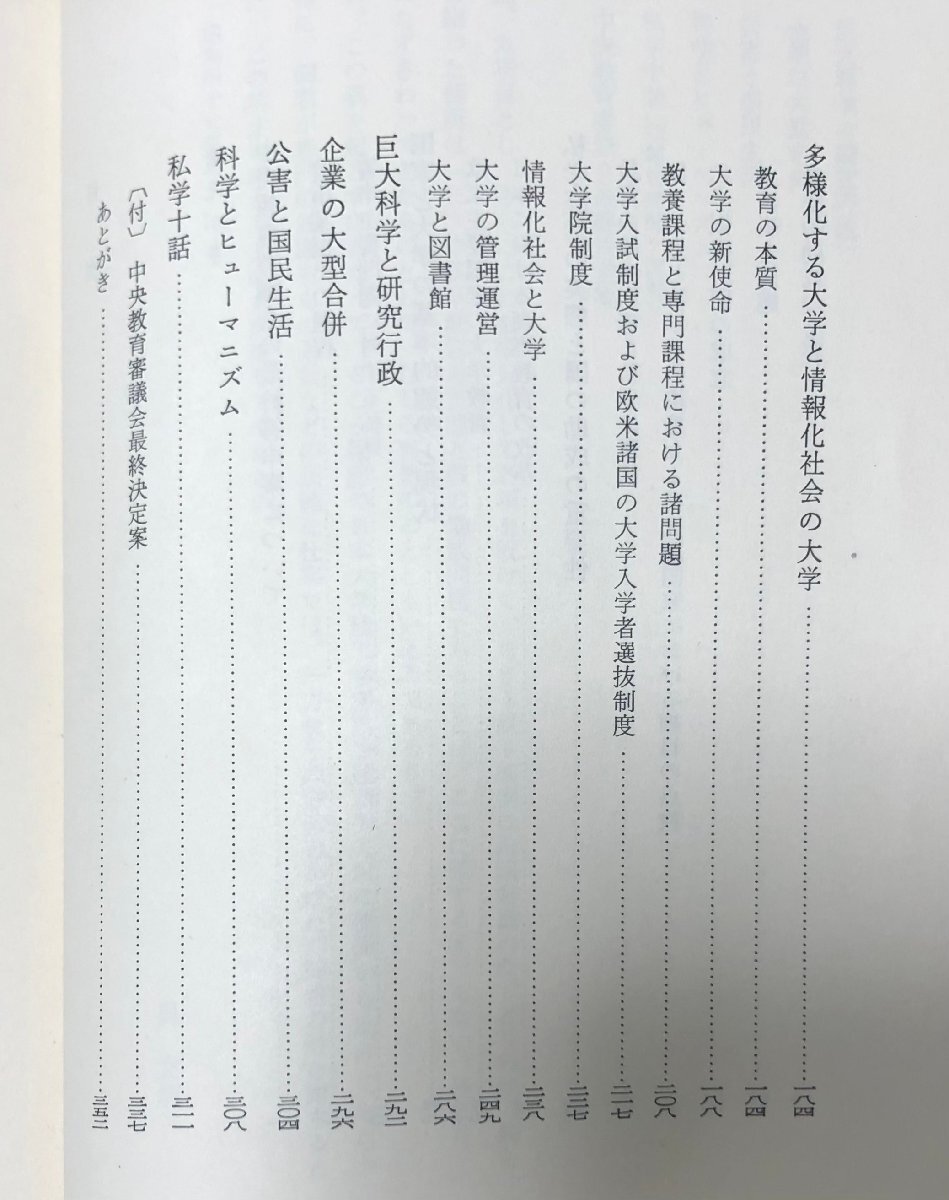 多様化する大学と情報化社会の大学……一八四
教育の本質……一八四
大学の新使命……一八八
教養課程と専門課程における諸問題……二〇八
大学入試制度および欧米諸国の大学入学者選抜制度……二一七
大学院制度……二二七
情報化社会と大学……二三八
大学の管理運営……二四九
大学と図書館……二八六
巨大科学と研究行政……二九二
企業の大型合併……二九六
公害と国民生活……三〇四
科学とヒューマニズム……三〇八
私学十話……三一一
〔付〕 中央教育審議会最終決定案……三三七
あとがき……三五二